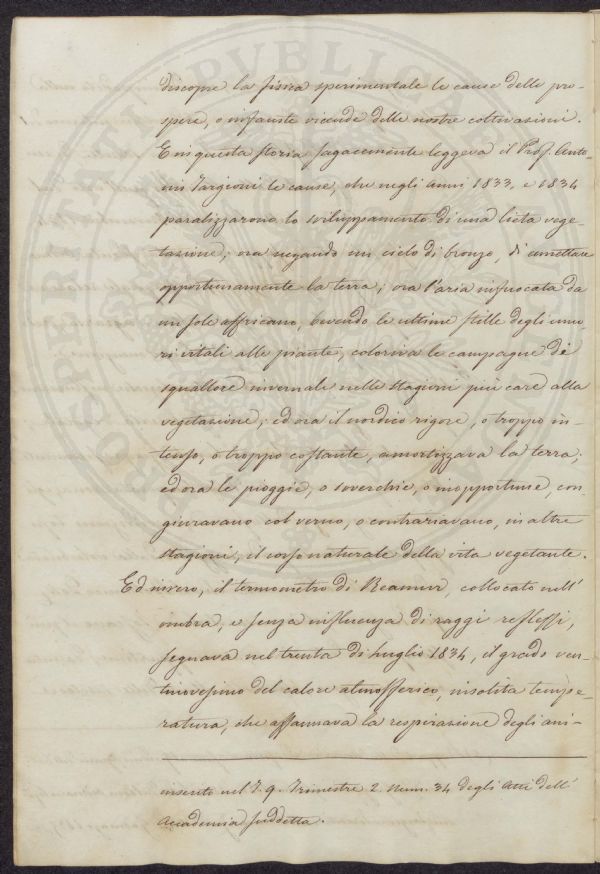 discopre la fisica sperimentale le cause delle pro-
spere, o infauste vicende delle nostre coltivazioni.
E in questa storia sagacemente leggeva il Prof. Anto-
nio Targioni le cause, che negli anni 1833, e 1834
paralizzarono lo sviluppamento di una lieta vege-
tazione; ora negando un cielo di bronzo, di umettare
opportunamente la terra; ora l'aria infuocata da
un sole affricano, bevendo le ultime stille degli umo-
ri vitali alle piante, coloriva le campagne di
squallore invernale nelle stagioni più care alla
vegetazione; ed ora il nordico rigore, o troppo in-
tenso, o troppo costante, amortizzava la terra;
ed ora le pioggie, o soverchie, o inopportune, con-
giuravano col verno, o contrariavano, in altre
stagioni, il corso naturale della vita vegetante.
Ed invero, il termometro di Reamur, collocato nell'
ombra, e senza influenza di raggi reflessi,
segnava nel trenta di luglio 1834, il grado ven-
tinovesimo del calore atmosferico, insolita tempe-
ratura, che affannava la respirazione degli ani-
inserito nel T. 9. Trimestre 2. Num. 34 degli Atti dell'
Accademia suddetta.
PROSPERITATI PUBLICAE